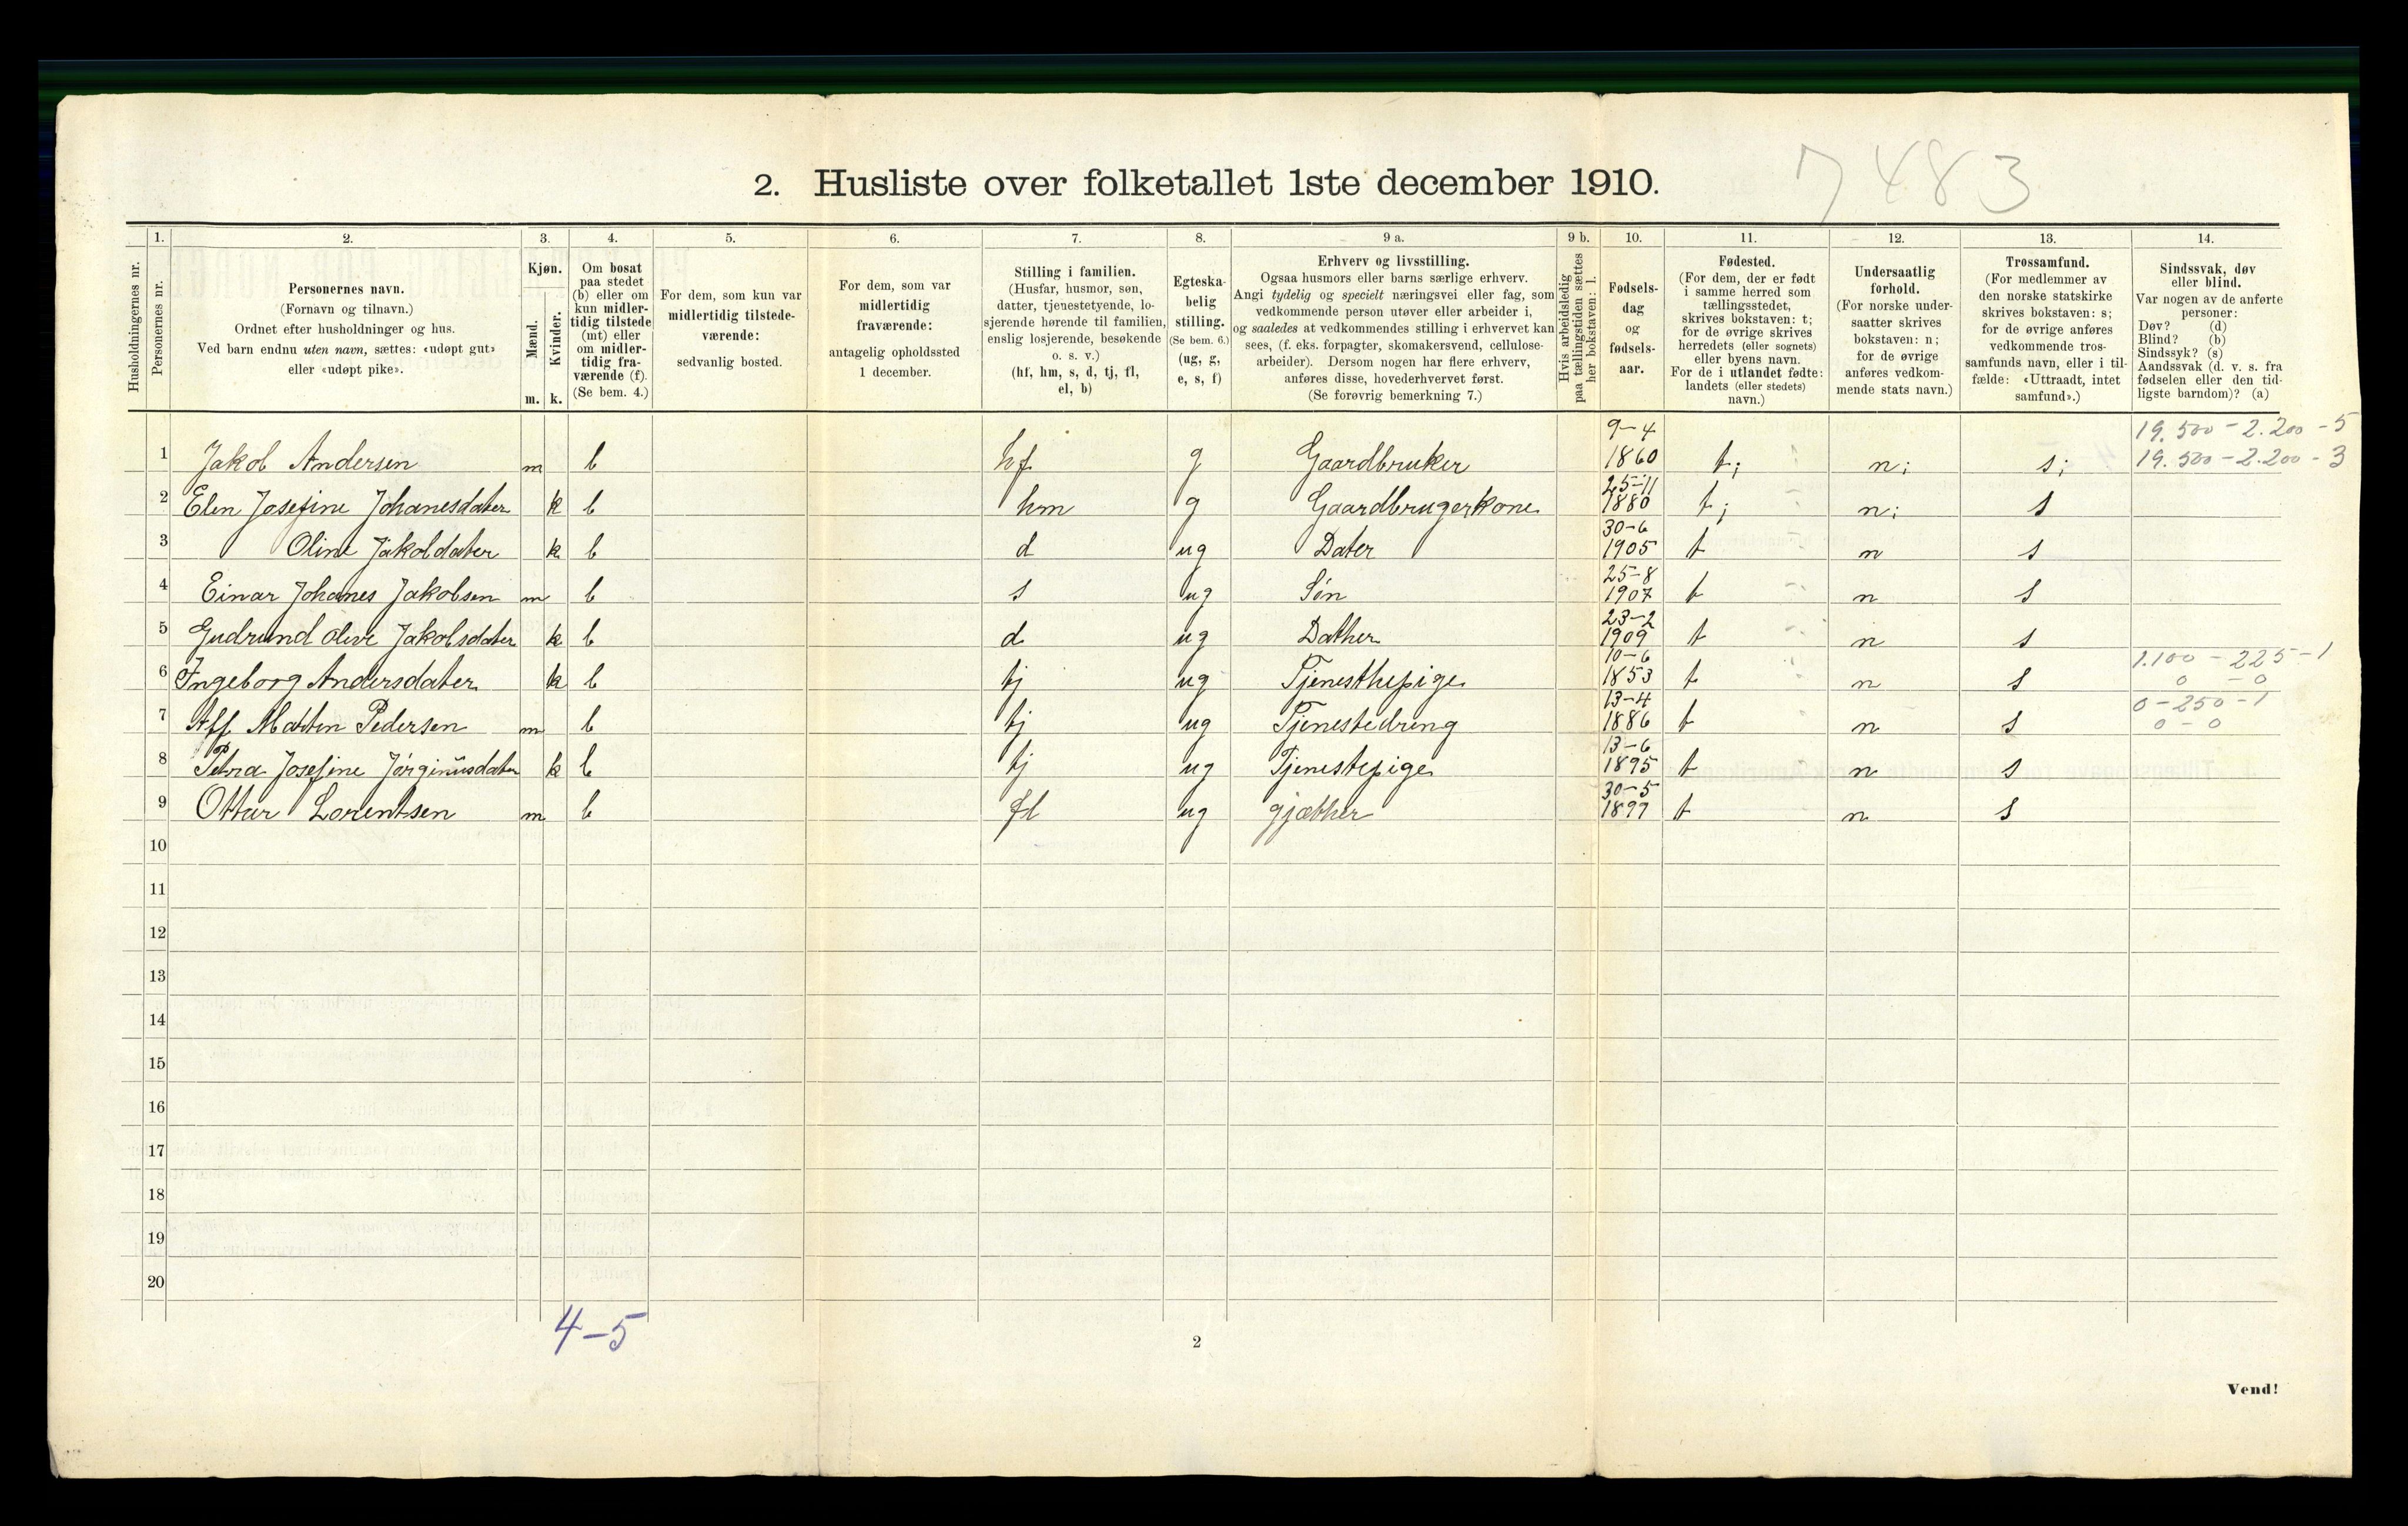 7483
2. Husliste over folketallet 1ste december 1910.
Husholdningernes nr.
1.
Personernes nr.
2.
Personernes navn.
(Fornavn og tilnavn.)
Ordnet efter husholdninger og hus.
Ved barn endnu uten navn, sættes: «udøpt gut»
eller «udøpt pike».
3.
Kjøn.
Mænd.
Kvinder.
m. k.
4.
Om bosat
paa stedet
(b) eller om
kun midler-
tidig tilstede
(mt) eller
om midler-
tidig fra-
værende (f).
(Se bem. 4.)
5.
For dem, som kun var
midlertidig tilstede-
værende:
sedvanlig bosted.
6.
For dem, som var
midlertidig
fraværende:
antagelig opholdssted
1 december.
7.
Stilling i familien.
(Husfar, husmor, søn,
datter, tjenestetyende, lo-
sjerende hørende til familien,
enslig losjerende, besøkende
o. s. v.)
(hf, hm, s, d, tj, fl,
el, b)
8.
Egteska-
belig
stilling.
(Se bem. 6.)
(ug, g,
e, s, f)
9 a.
Erhverv og livsstilling.
Ogsaa husmors eller barns særlige erhverv.
Angi tydelig og specielt næringsvei eller fag, som
vedkommende person utøver eller arbeider i,
og saaledes at vedkommendes stilling i erhvervet kan
sees, (f. eks. forpagter, skomakersvend, cellulose-
arbeider). Dersom nogen har flere erhverv,
anføres disse, hovederhvervet først.
(Se forøvrig bemerkning 7.)
9 b.
Hvis arbeidsledig
paa tællingstiden sættes
her bokstaven: l.
10.
Fødsels-
dag
og
fødsels-
aar.
11.
Fødested.
(For dem, der er født
i samme herred som
tællingsstedet,
skrives bokstaven: t;
for de øvrige skrives
herredets (eller sognets)
eller byens navn.
For de i utlandet fødte:
landets (eller stedets)
navn.)
12.
Undersaatlig
forhold.
(For norske under-
saatter skrives
bokstaven: n;
for de øvrige
anføres vedkom-
mende stats navn.)
13.
Trossamfund.
(For medlemmer av
den norske statskirke
skrives bokstaven: s;
for de øvrige anføres
vedkommende tros-
samfunds navn, eller i til-
fælde: «Uttraadt, intet
samfund».)
14.
Sindssvak, døv
eller blind.
Var nogen av de anførte
personer:
Døv? (d)
Blind? (b)
Sindssyk? (s)
Aandssvak (d. v. s. fra
fødselen eller den tid-
ligste barndom)? (a)
9-4 19.500 - 2.200 - 5
1 Jakob Andersen m b hf g Gaardbruker 1860 t; n; s; 19.500 - 2.200 - 3
25-11
2 Elen Josefine Johanesdater k b hm g Gaardbrugerkone 1880 t; n; s
30-6
3 Oline Jakoldater k b d ug Dater 1905 t n s
25-8
4 Einar Johanes Jakobsen m b s ug Sön 1907 t n s
23-2
5 Gudrund Olive Jakobsdater k b d ug Dather 1909 t n s
10-6 1.100 - 225 - 1
6 Ingeborg Andersdater k b tj ug Tjenesthepige 1853 t n s 0 - 0
13-4 0 - 250 - 1
7 Alf Marten Pedersen m b tj ug Tjenestedreng 1886 t n s 0 - 0
13-6
8 Petra Josefine Jörginusdater k b tj ug Tjenestepige 1895 t n s
30-5
9 Ottar Lorentsen m b fl ug gjæther 1897 t n s
10
11
12
13
14
15
16
17
18
19
20
4-5
2
Vend!